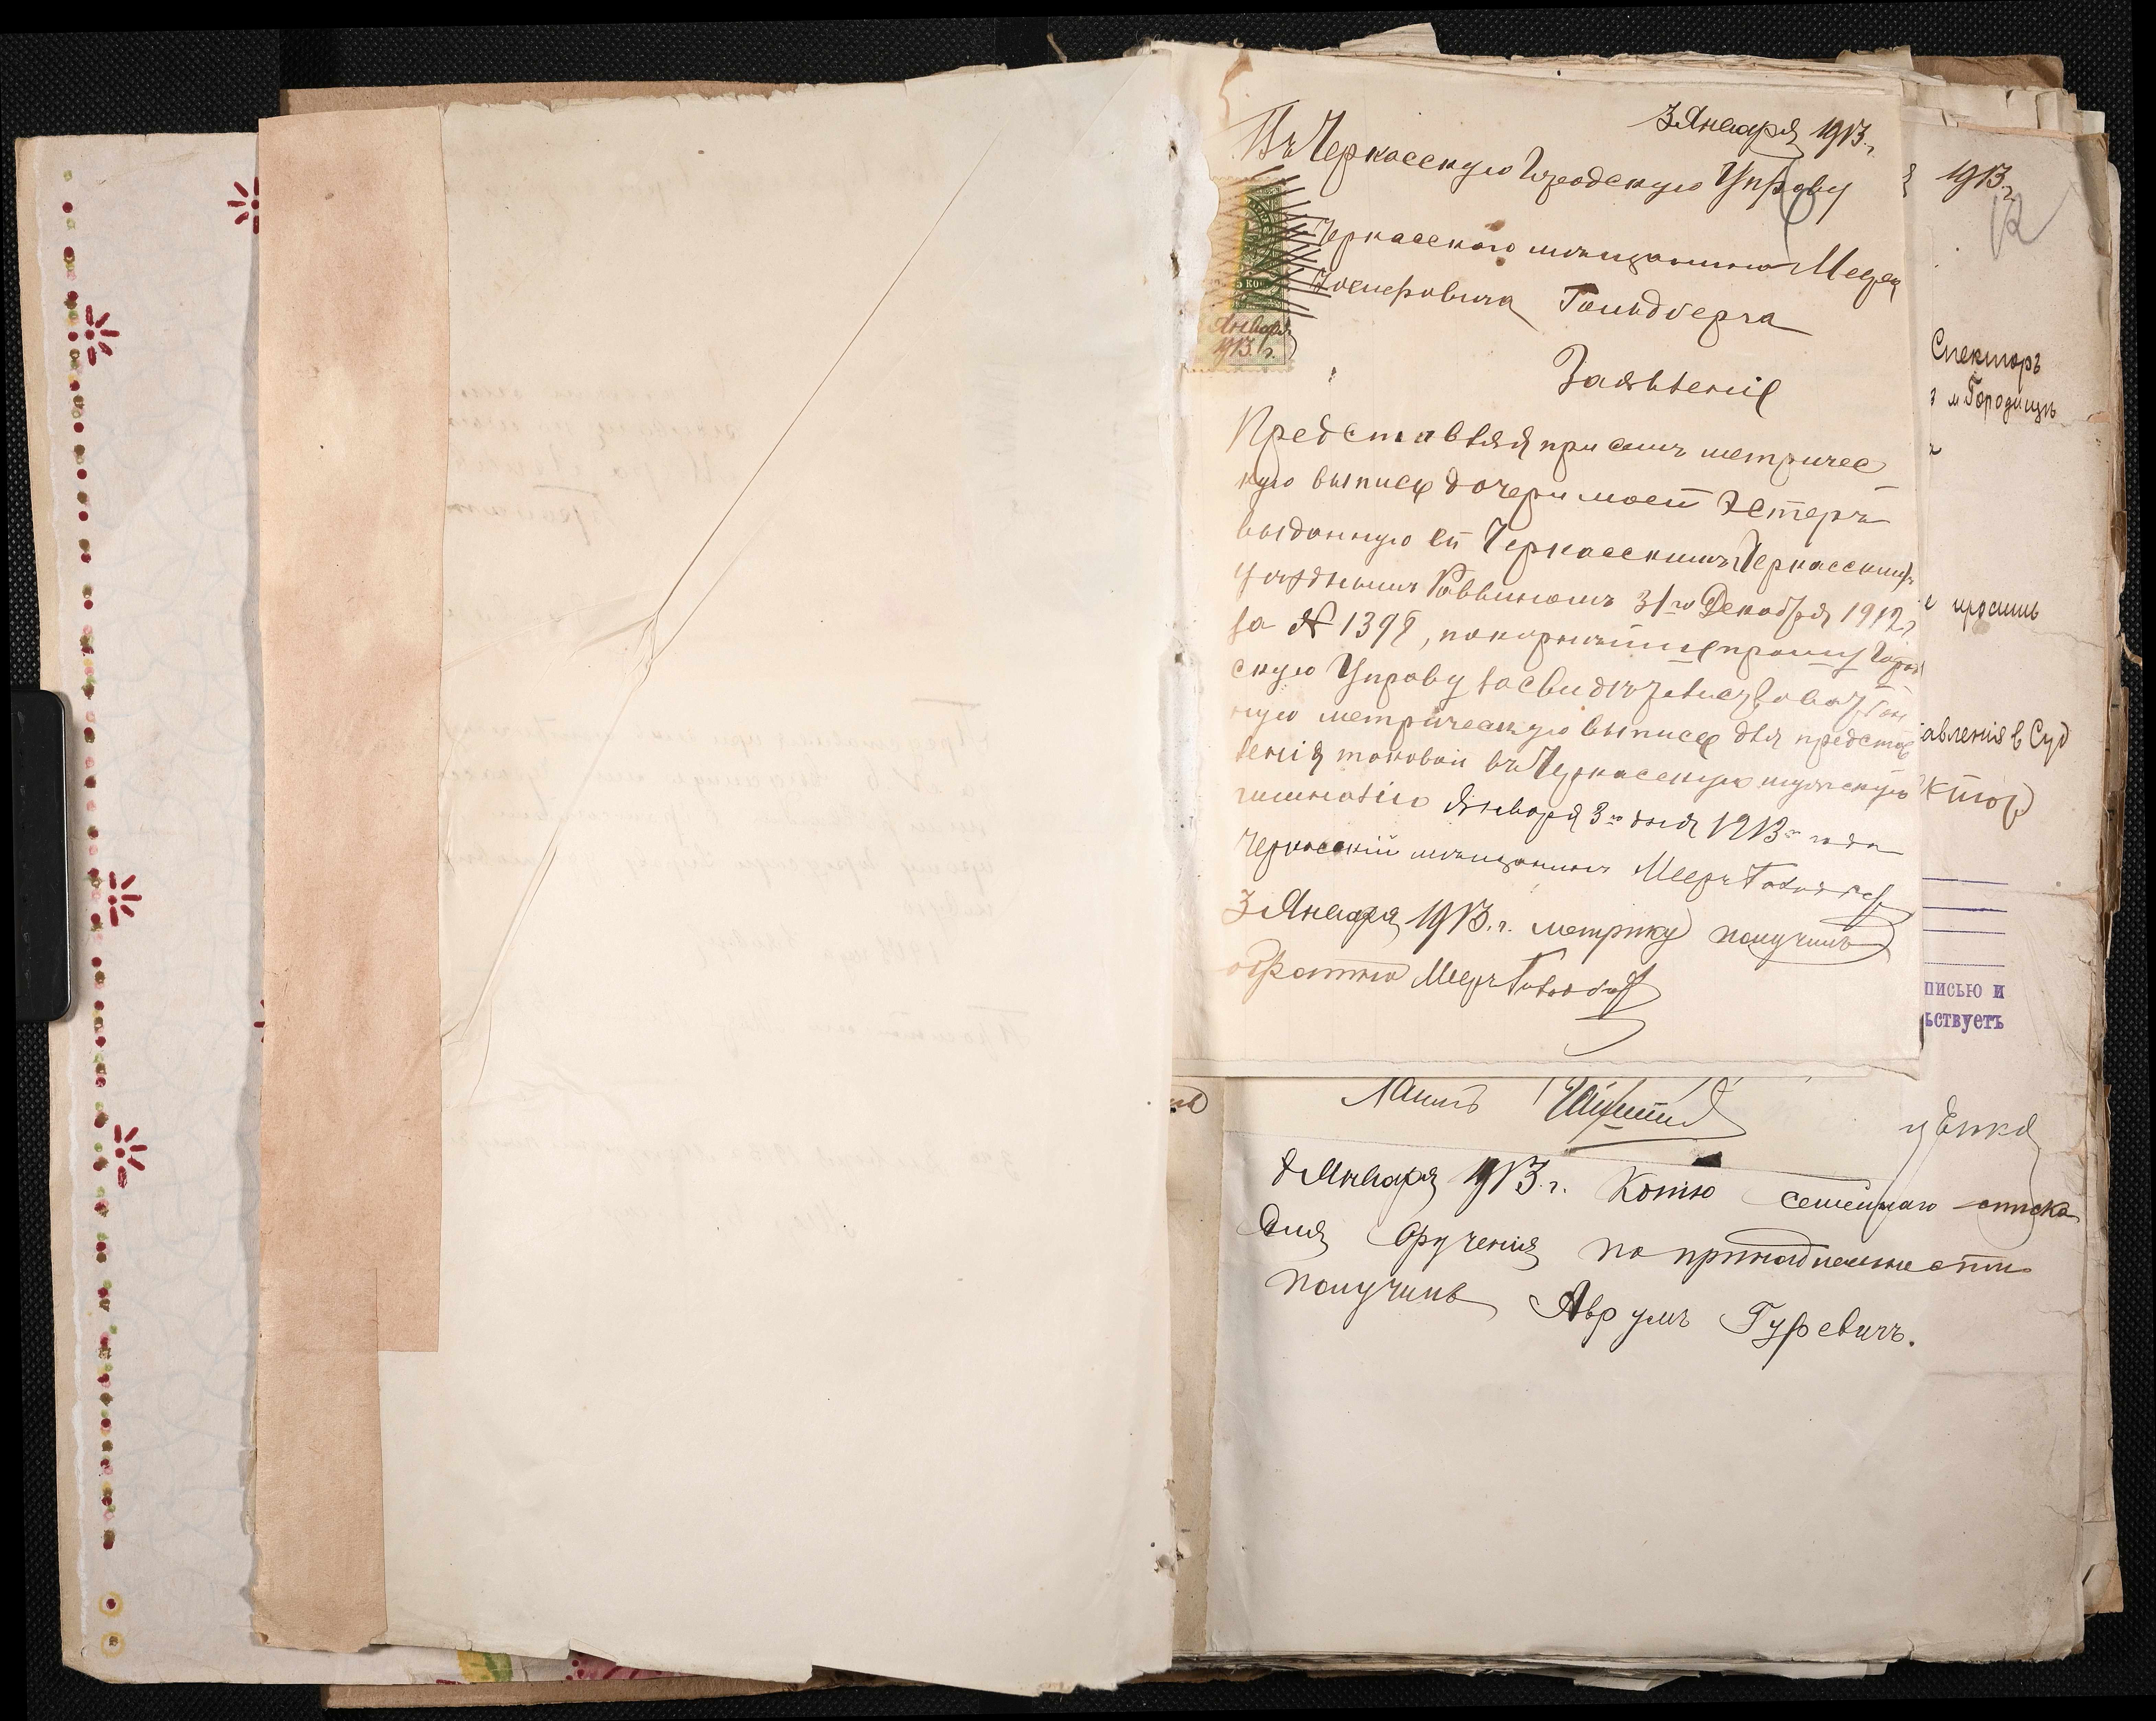 3 Января 1913 г.
Въ Черкасскую Городскую Управу
Черкасскаго мѣщанина Меера
Іосифовича Гольдберга
5 КОП
Января
1913 г.
Заявленіе
Представляя при семъ метричес
кую выпись дочери моей Эстеръ
выданную ей Черкасскимъ Черкасскимъ
уѣзднымъ Раввиномъ 31го Декабря 1912 г
за № 1398, покорнѣйше прошу Город
скую Управу засвидѣтельствовать
ную метрическую выпись для представ
ленія таковой въ Черкасскую мужскую
гимназію Января 3го дня 1913го года
Черкасскій мѣщанинъ Мееръ Гольдбергъ
3 Января 1913 г. метрику получилъ
обратно Мееръ Гольдбергъ
1913 г.
12
Спекторъ
м Городищъ
просить
авленія в Суд
ктор
писью и
ьствуетъ
8 Января 1913 г. Копію семейнаго списка
для врученія по принадлежности
получилъ Аврумъ Гуревичъ.